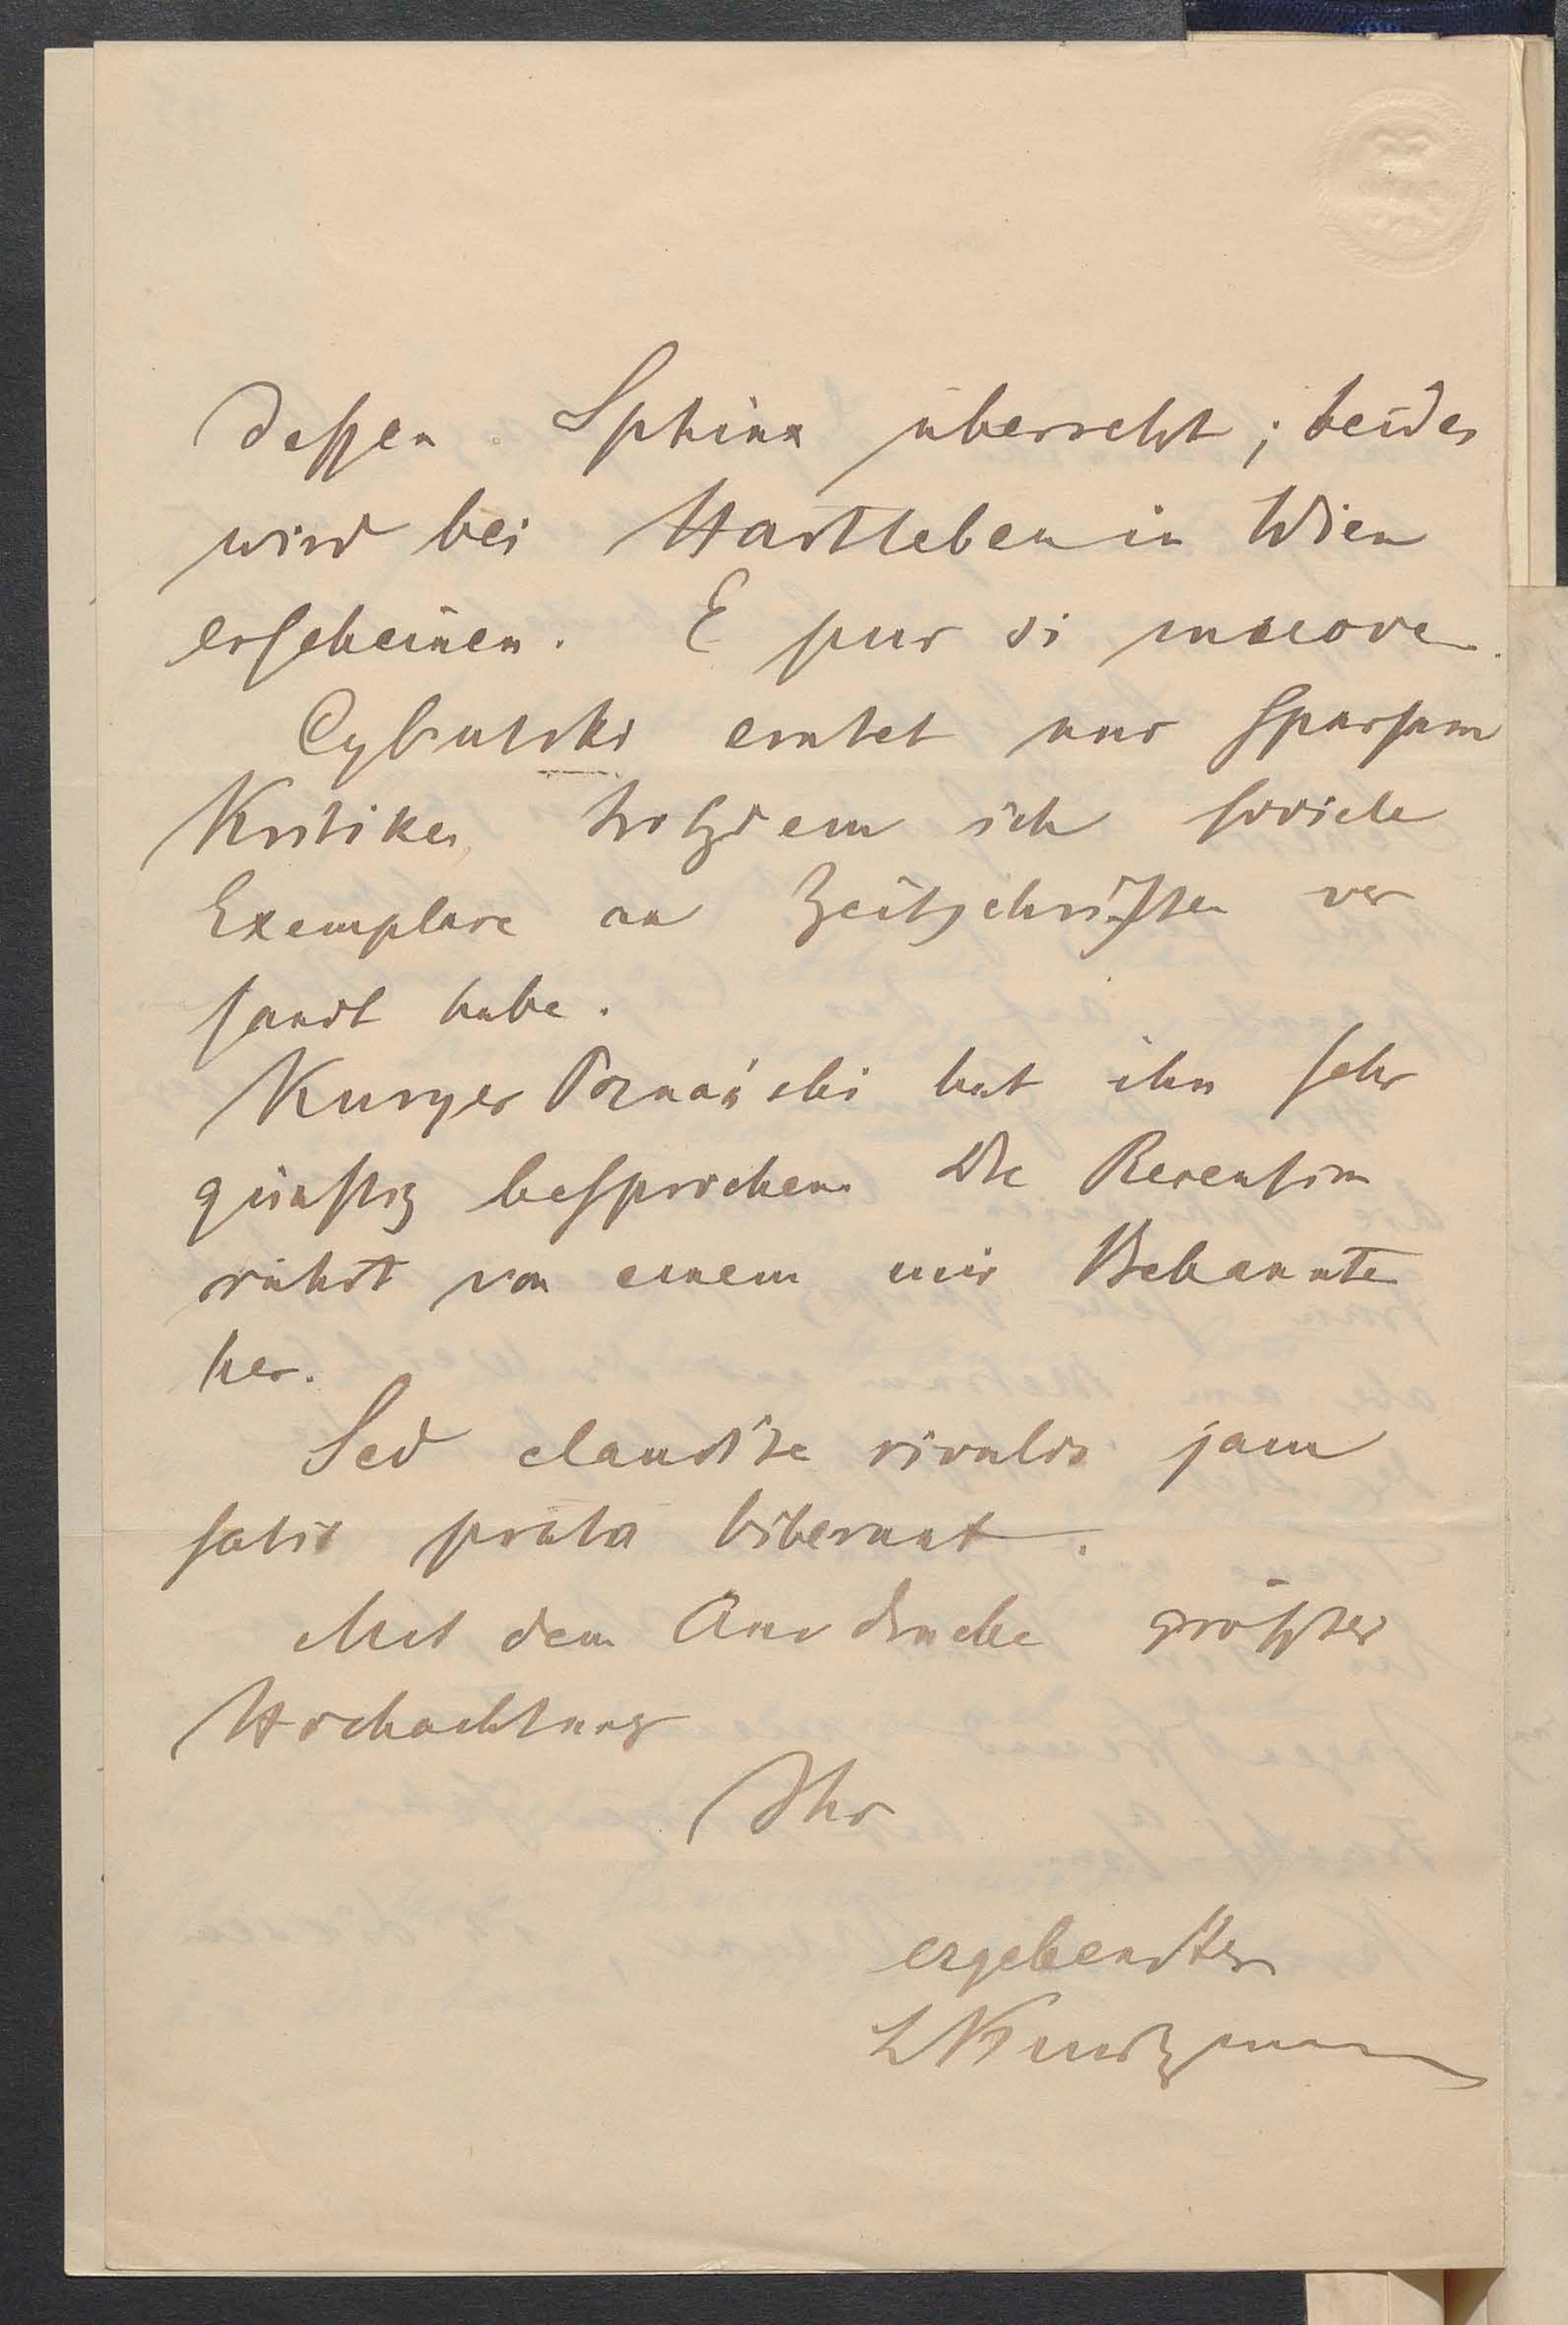 dessen Sphinx übersetzt; beides
wird bei Hartleben in Wien
erscheinen. E pur si muove.
Cybulski erntet nur sparsam
Kritiken trotzdem ich soviele
Exemplare an Zeitschriften ver
sandt habe.
Kuryer Poznański hat ihn sehr
günstig besprochen. Die Recension
rührt von einem mir Bekannten
her.
Sed claudite rivulos jam
satis prata biberunt.
Mit dem Ausdrucke größter
Hochachtung
Ihr
ergebenster
L Kurtzmann